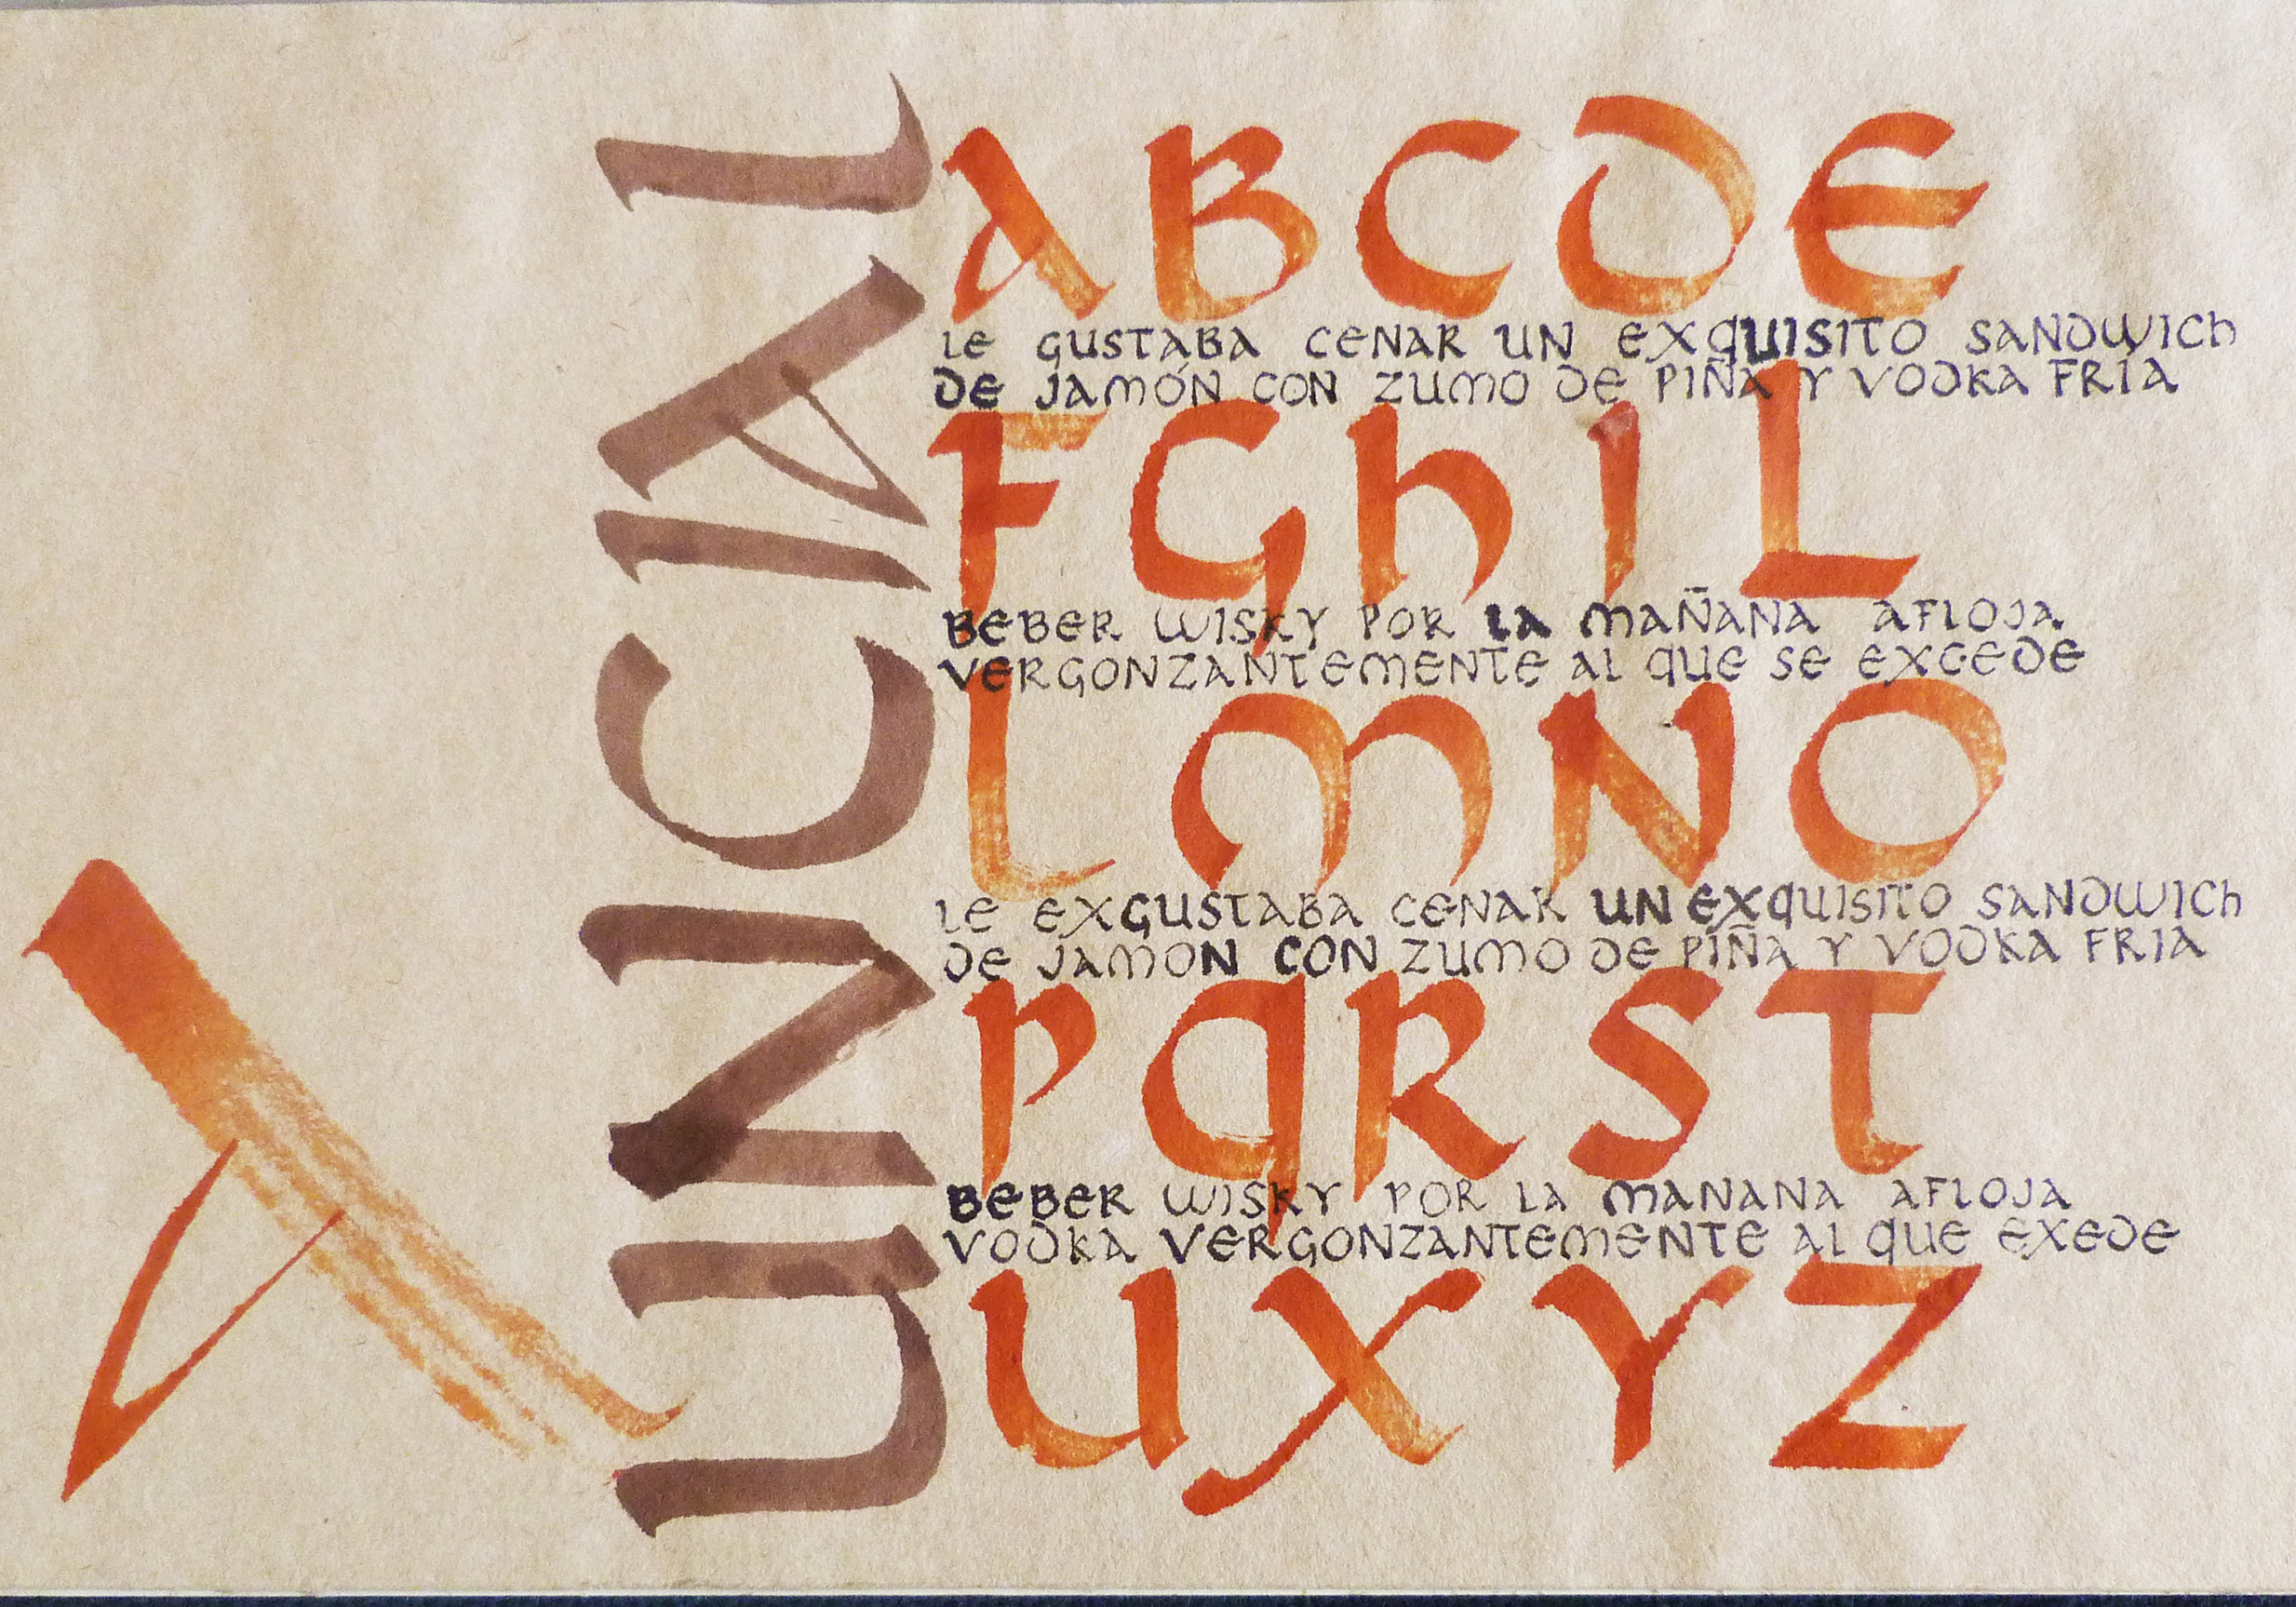 A
UNCIAL
ABCDE
LE GUSTABA CENAR UN EXQUISITO SANDWICH
DE JAMÓN CON ZUMO DE PIÑA Y VODKA FRÍA
FGHIL
BEBER WISKY POR LA MAÑANA AFLOJA
VERGONZANTEMENTE AL QUE SE EXCEDE
LMNO
LE EXGUSTABA CENAR UN EXQUISITO SANDWICH
DE JAMON CON ZUMO DE PIÑA Y VODKA FRIA
PQRST
BEBER WISKY POR LA MANANA AFLOJA
VODKA VERGONZANTEMENTE AL QUE EXEDE
UXYZ